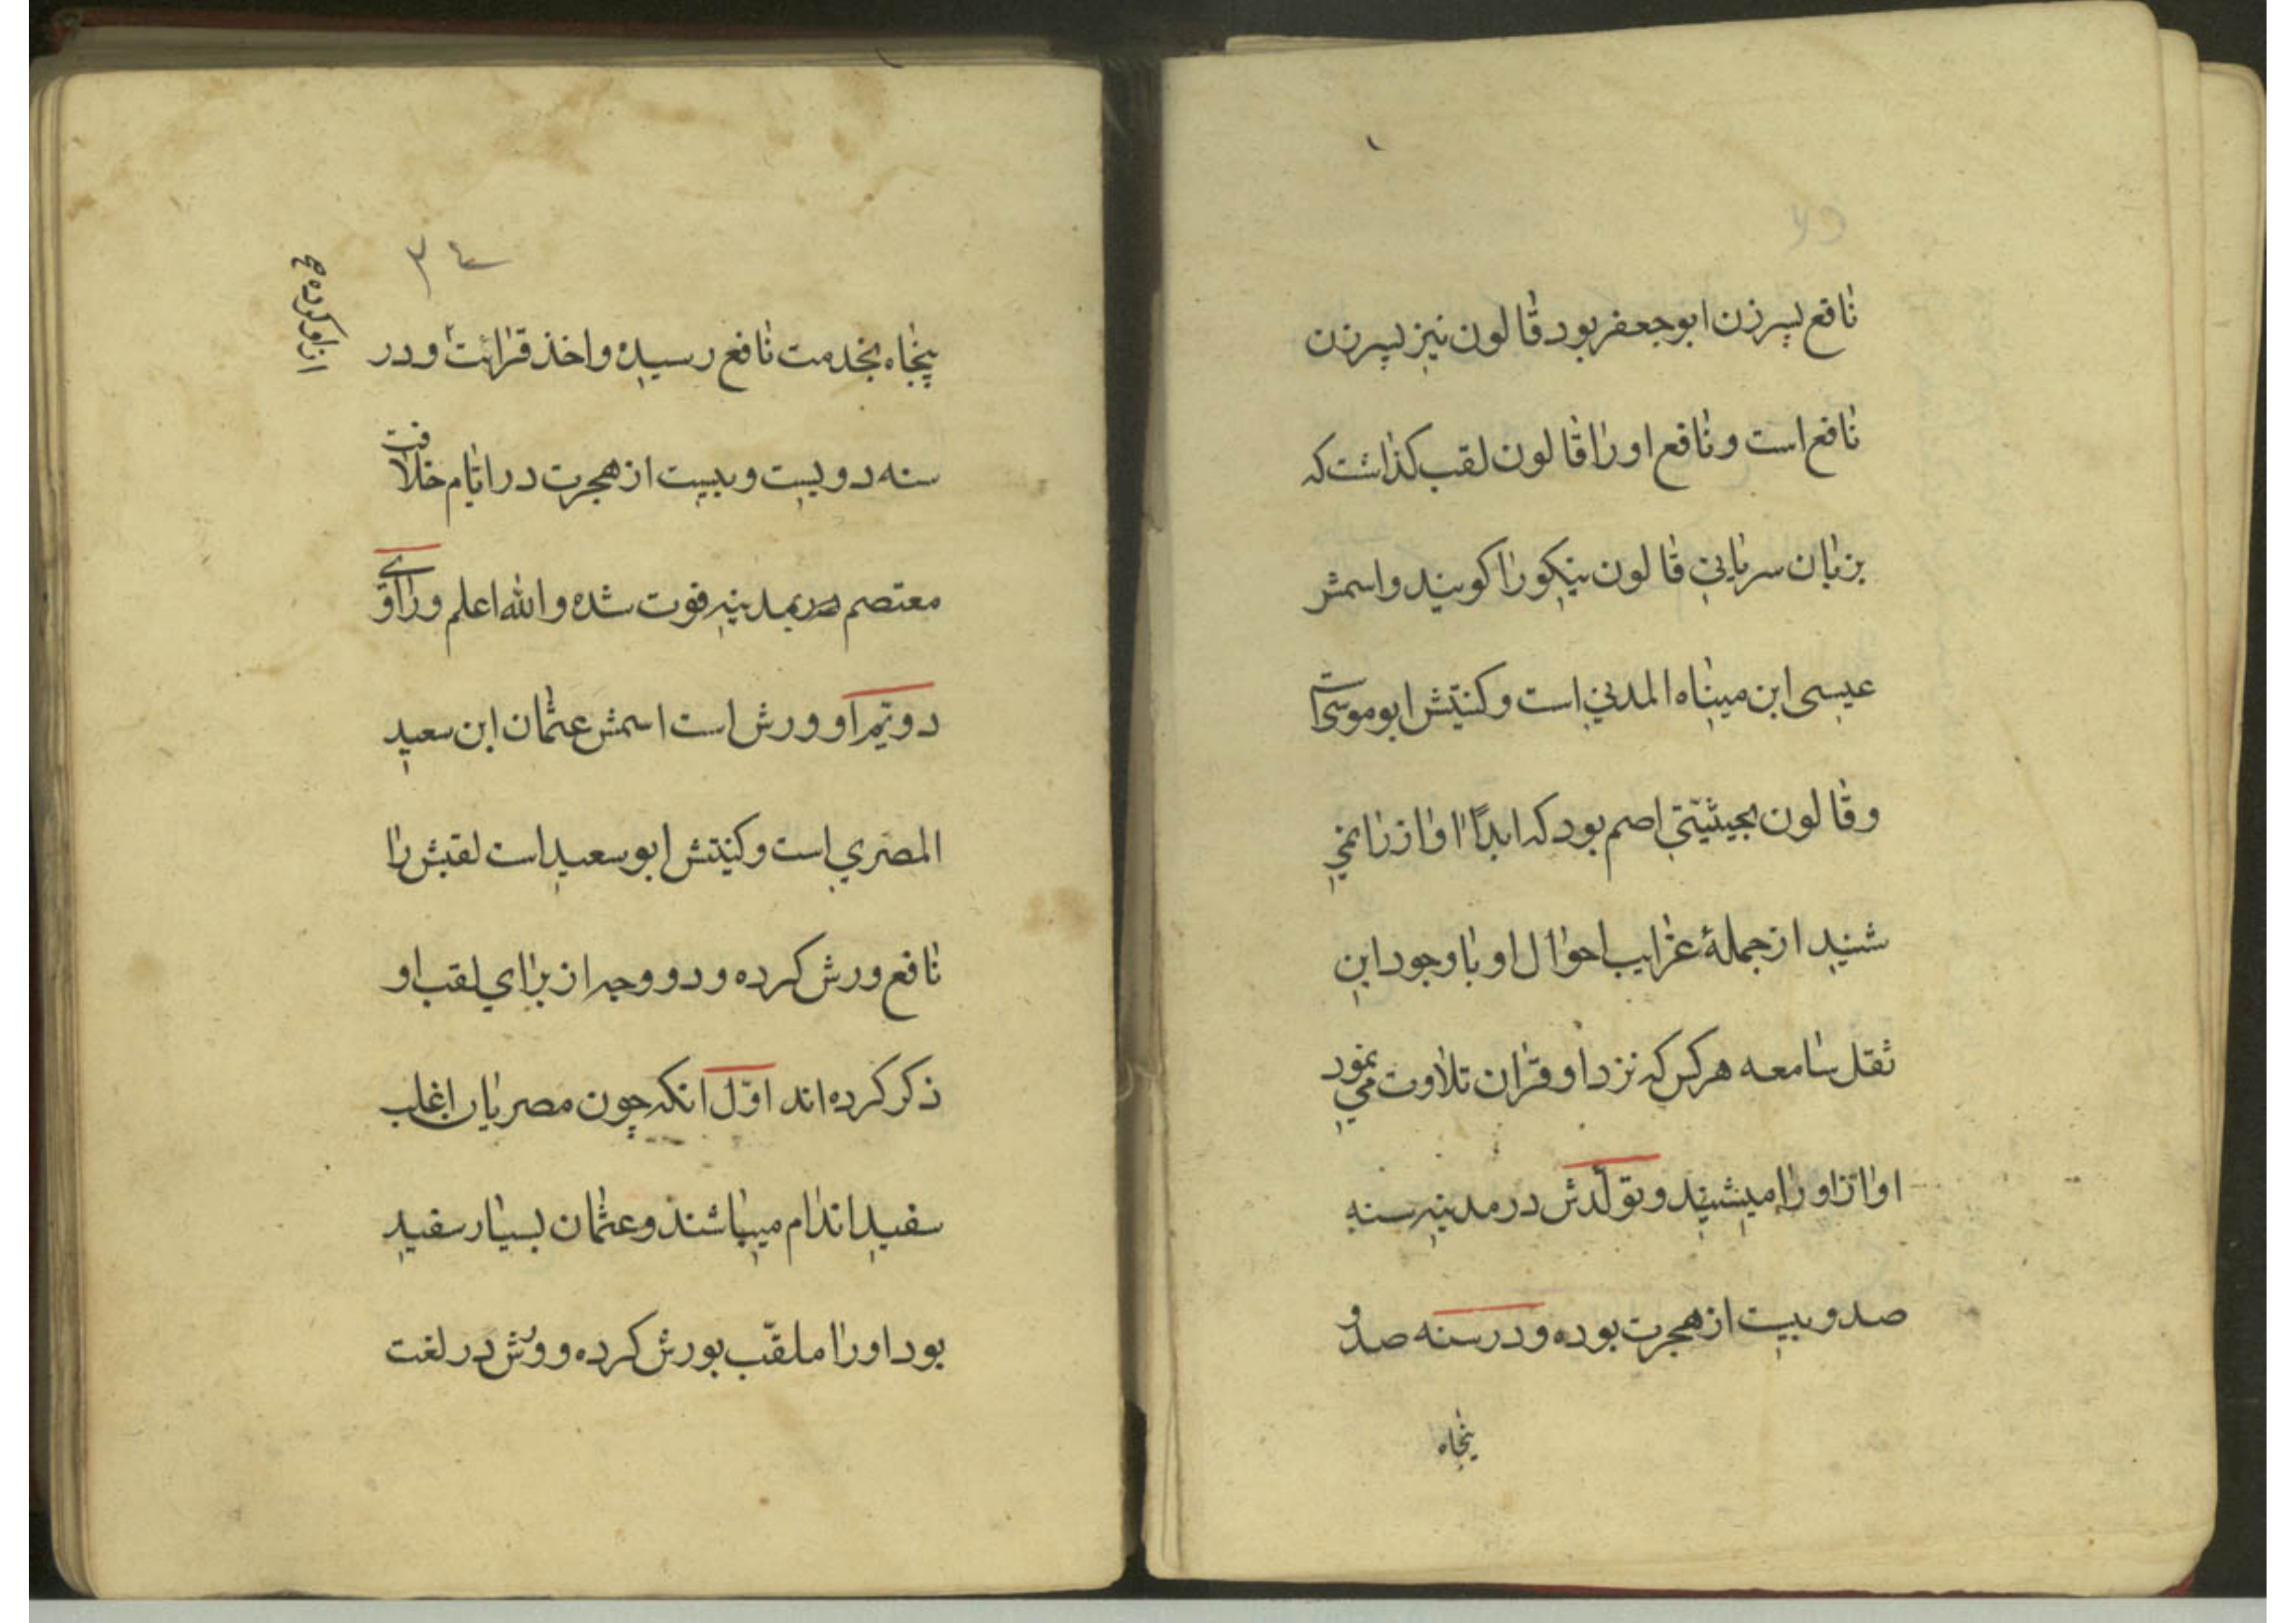 نافع پسر زن ابو جعفر بود قالون نیز پسر زن
نافع است و نافع او را قالون لقب کذاشت که
بزبان سریانی قالون نیکو را کویند و اسمش
عیسی ابن میناه المدنی است و کنیتش ابو موسی است
و قالون بحیثیتی اصم بود که ابداً اواز را نمی
شنید از جملهٔ غرایب احوال او با وجود این
ثقل سامعه هر کس که نزد او قران تلاوت می نمود
اواز او را میشنید و تولدش در مدینه سنه
صد و بیست از هجرت بوده و در سنه صد و
پنجاه
۳۴
پنجاه بخدمت نافع رسیده و اخذ قرائت و در
از او کرده
سنه دویست و بیست از هجرت در ایام خلافت
معتصم بمدینه فوت شده و الله اعلم و راوی
دویم او ورش است اسمش عثمان ابن سعید
المصری است و کنیتش ابو سعید است لقبش را
نافع ورش کرده و دو وجه از برای لقب او
ذکر کرده اند اوّل انکه چون مصریان اغلب
سفید اندام میباشند و عثمان بسیار سفید
بود او را ملقّب بورش کرده و ورش در لغت